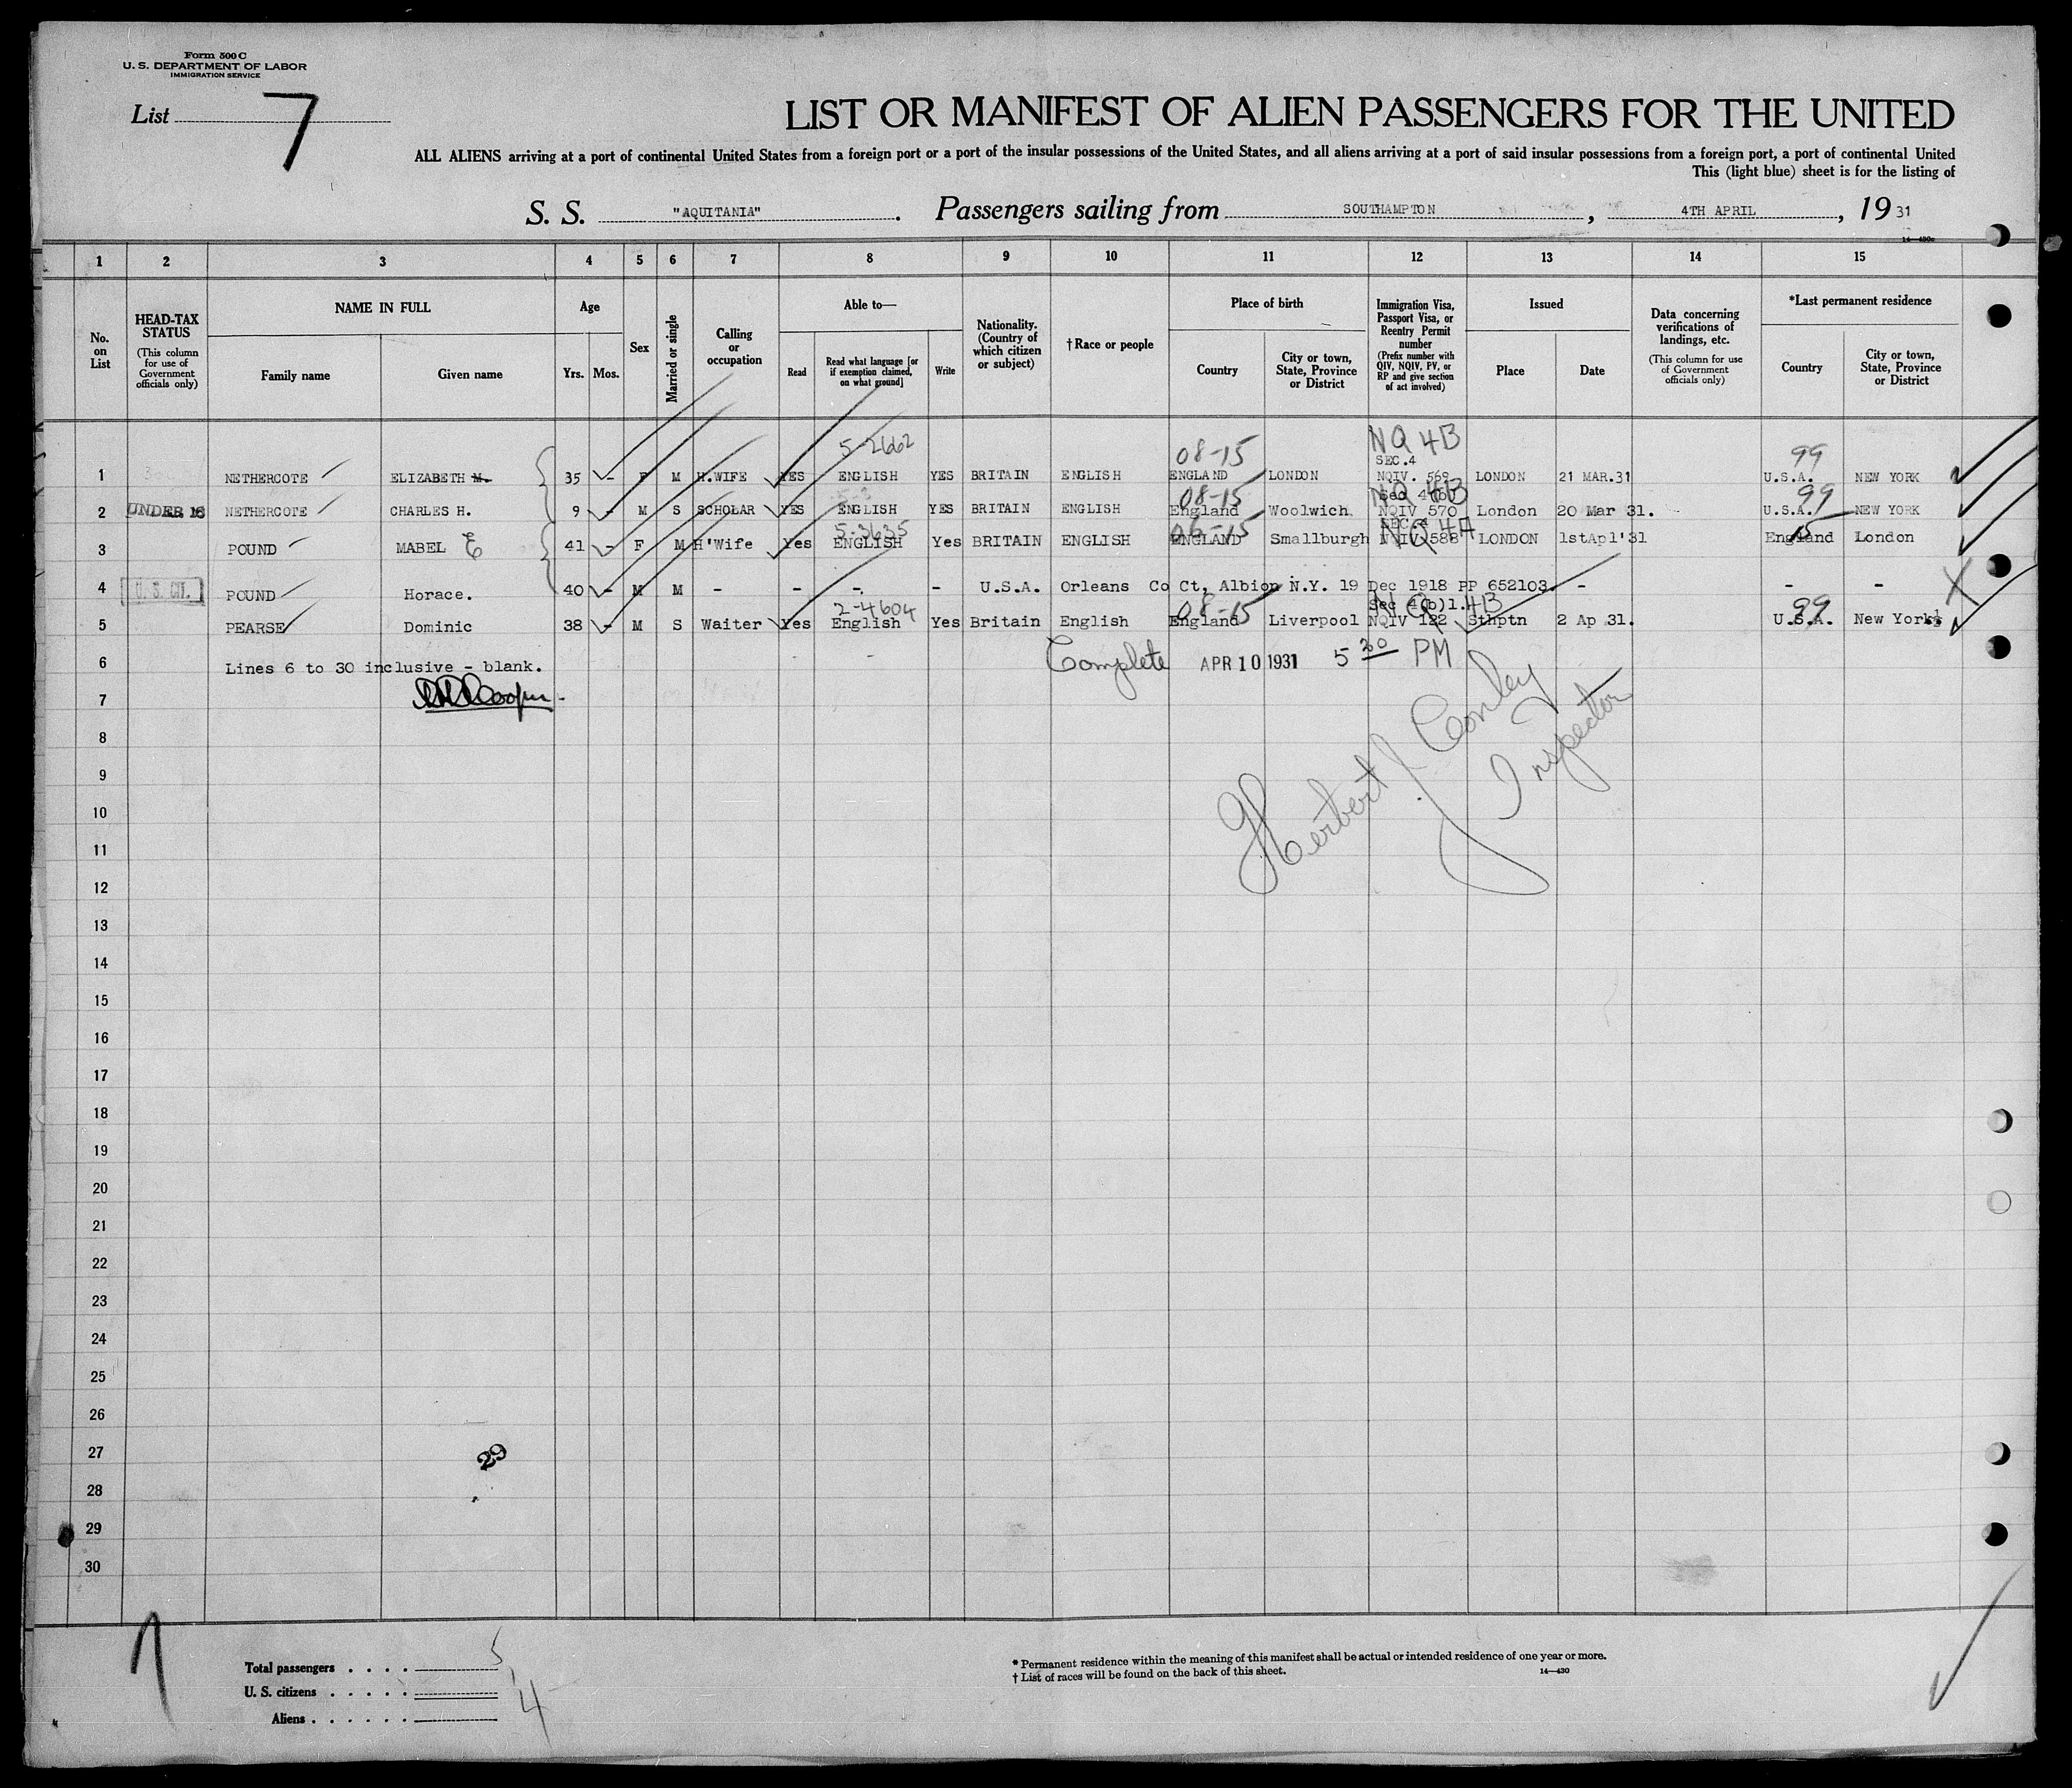 Form 500 C
U. S. DEPARTMENT OF LABOR
IMMIGRATION SERVICE
List 7
LIST OR MANIFEST OF ALIEN PASSENGERS FOR THE UNITED
ALL ALIENS arriving at a port of continental United States from a foreign port or a port of the insular possessions of the United States, and all aliens arriving at a port of said insular possessions from a foreign port, a port of continental United
This (light blue) sheet is for the listing of
S. S. "AQUITANIA". Passengers sailing from SOUTHAMPTON, 4TH APRIL, 19 31
14—430c
1 2 3 4 5 6 7 8 9 10 11 12 13 14 15
No. on List
HEAD-TAX STATUS (This column for use of Government officials only)
NAME IN FULL
Family name
Given name
Age
Yrs. Mos.
Sex
Married or single
Calling or occupation
Able to—
Read
Read what language [or if exemption claimed, on what ground]
Write
Nationality. (Country of which citizen or subject)
†Race or people
Place of birth
Country
City or town, State, Province or District
Immigration Visa, Passport Visa, or Reentry Permit number (Prefix number with QIV, NQIV, PV, or RP and give section of act involved)
Issued
Place
Date
Data concerning verifications of landings, etc. (This column for use of Government officials only)
*Last permanent residence
Country
City or town, State, Province or District
5-2662 08-15 NQ 4B 99
SEC.4
1 NETHERCOTE ELIZABETH M. 35 - F M H.WIFE YES ENGLISH YES BRITAIN ENGLISH ENGLAND LONDON NQIV. 569 LONDON 21 MAR.31 U.S.A. NEW YORK
08-15 NQ 4B 99
2 UNDER 16 NETHERCOTE CHARLES H. 9 - M S SCHOLAR YES ENGLISH YES BRITAIN ENGLISH England Woolwich NQIV 570 London 20 Mar 31. U.S.A. NEW YORK
5-3635 06-15 SEC.4 NQ 4A 15
3 POUND MABEL E 41 - F M H'Wife Yes ENGLISH Yes BRITAIN ENGLISH ENGLAND Smallburgh NQIV 588 LONDON 1stApl'31 England London
4 U. S. CIT. POUND Horace. 40 - M M - - - - U.S.A. Orleans Co Ct, Albion N.Y. 19 Dec 1918 PP 652103. - - -
2-4604 08-15 Sec 4(b)1. NQ 4B 99
5 PEARSE Dominic 38 - M S Waiter Yes English Yes Britain English England Liverpool NQIV 122 Sthptn 2 Ap 31. U.S.A. New York
6 Lines 6 to 30 inclusive - blank. Complete APR 10 1931 5 30 PM
7
8
Herbert J Conley
Inspector
9
10
11
12
13
14
15
16
17
18
19
20
21
22
23
24
25
26
27
29
28
29
30
Total passengers . . . . 5
U. S. citizens . . . . . 1
Aliens . . . . . . 4
* Permanent residence within the meaning of this manifest shall be actual or intended residence of one year or more.
† List of races will be found on the back of this sheet. 14—430